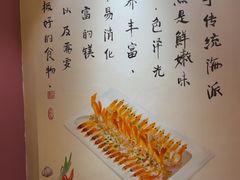 于传统海派
点是鲜嫩味
，色泽光
不丰富，
易消化
富的镁
以及需要
极好的食物.